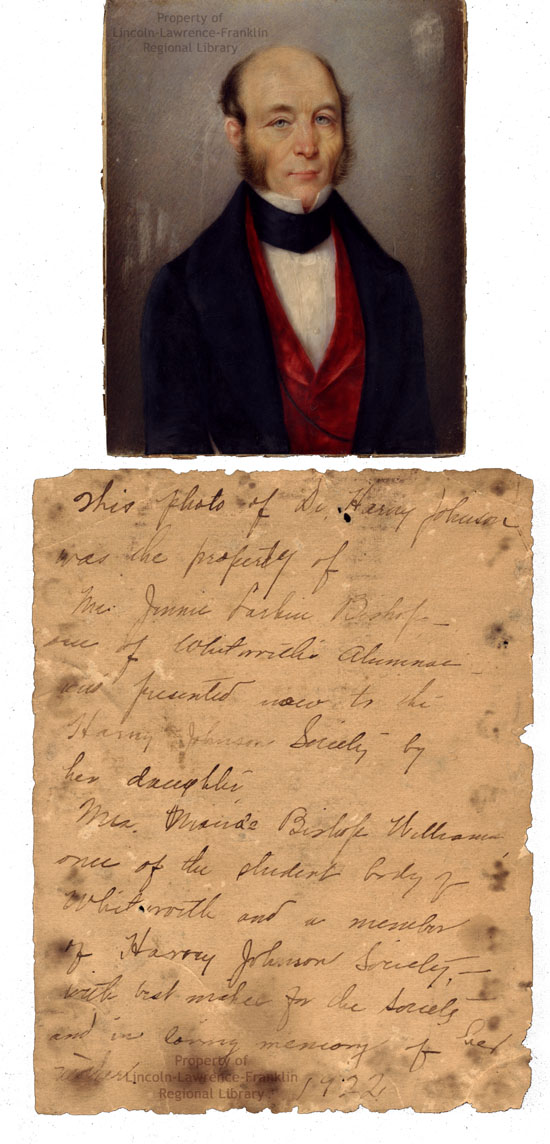 Property of
Lincoln-Lawrence-Franklin
Regional Library
This photo of Dr. Harvy Johnson
was the property of
Mrs. Jennie Larkin Bishop—
one of Whitworth's Alumnae—
and presented now to the
Harvy Johnson Society by
her daughter
Mrs. Bishop Williams,
one of the student body of
Whitworth and a member
of Harvy Johnson Society,—
with best wishes for the Society
and in loving memory of her
mother.
1922
Property of
Lincoln-Lawrence-Franklin
Regional Library